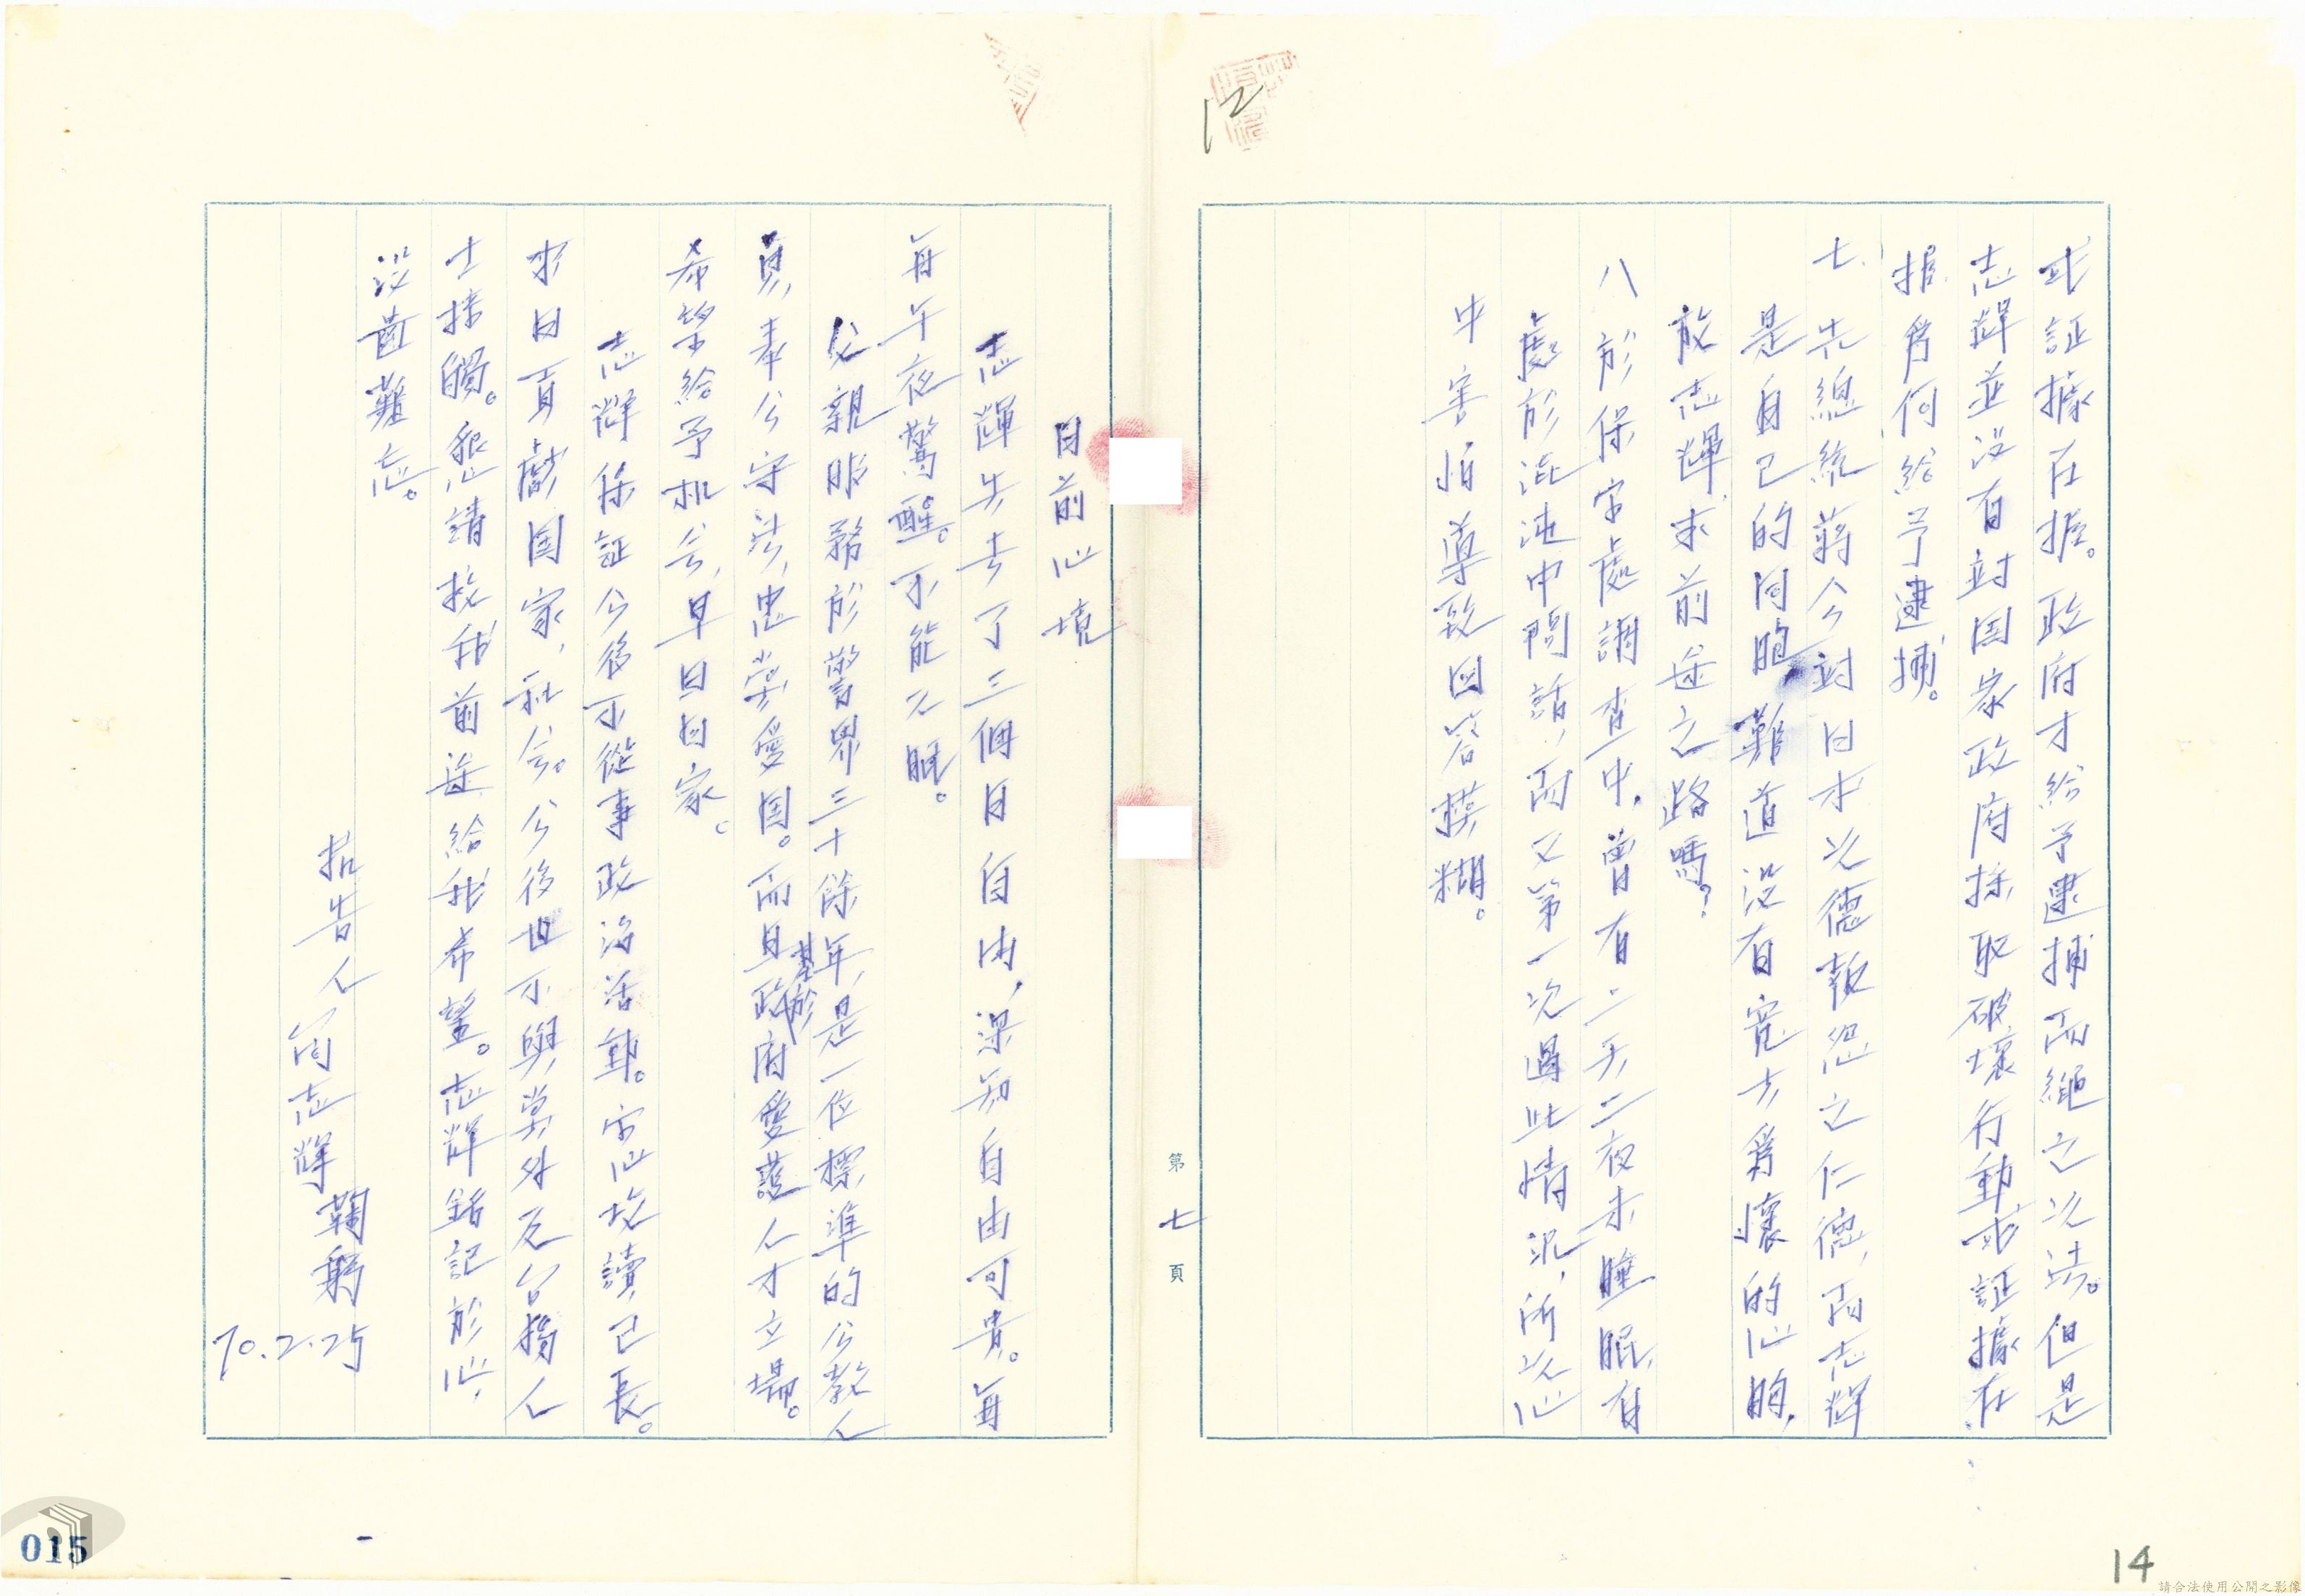 12
或証據在握。政府才給予逮捕而繩之以法。但是
志輝並沒有對国家政府採取破壞行動或証據在
握為何給予逮捕。
七、先總統蔣公對日本以德報怨之仁德,而志輝
是自己的同胞,難道沒有寬大為懷的心胸,
放志輝求前途之路嗎?
八於保安處調查中,曾有二天二夜未睡眠,有
處於混沌中問話,而又第一次遇此情況,所以心
中害怕導致回答模糊。
第七頁
目前心境
志輝失去了三個月自由,深知自由可貴。每
每午夜驚醒。不能入眠。
父親服務於警界三十餘年,是一位標準的公教人
員,奉公守法,忠黨愛国。而且基於政府愛護人才立場。
希望給予机会,早日回家。
志輝保証今後不從事政治活動。安心攻讀,已長。
求日貢獻国家,社会。今後也不與党外及台獨人
士接觸。懇請投我前途給我希望。志輝銘記於心,
沒齒難忘。
報告人 何志輝 鞠躬
70.2.25
015
14
請合法使用公開之影像